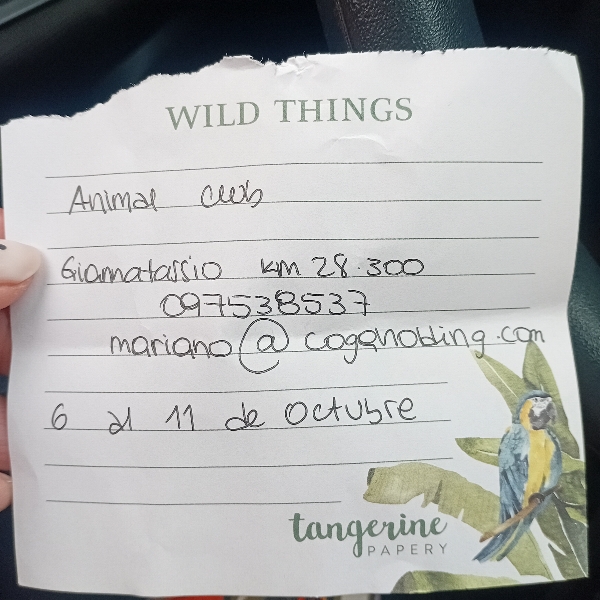 WILD THINGS
Animal club
Giamatassio km 28.300
097538537
mariano@coganobling.com
6 al 11 de octubre
tangerine
PAPERY